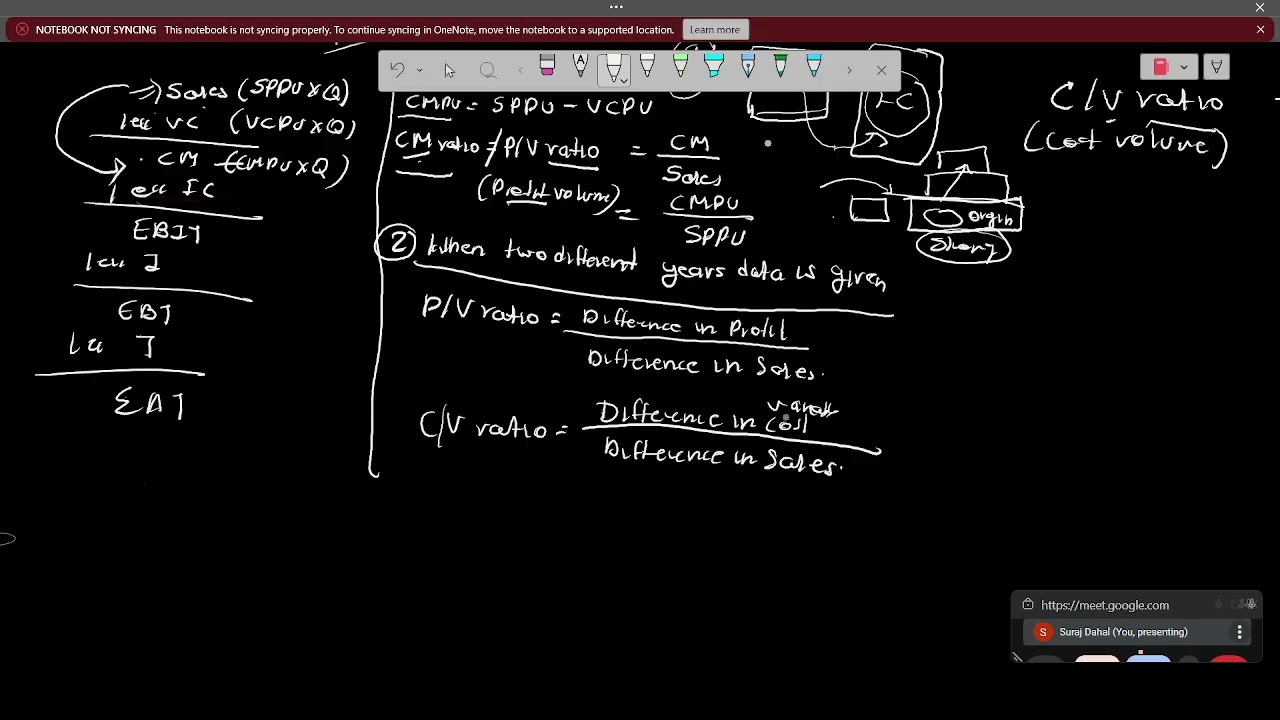 NOTEBOOK NOT SYNCING This notebook is not syncing properly. To continue syncing in OneNote, move the notebook to a supported location. Learn more
Sales (SPPU×Q)
less VC (VCPU×Q)
CM (CMPU×Q)
less FC
EBIT
less I
EBT
less T
EAT
CMPU = SPPU - VCPU
CM ratio = P/V ratio = CM
Sales
(Profit volume) = CMPU
SPPU
② When two different years data is given
P/V ratio = Difference in Profit
Difference in Sales.
C/V ratio = Difference in Cost
Difference in Sales.
FC
origin
C/V ratio
(Cost volume)
https://meet.google.com
S Suraj Dahal (You, presenting)